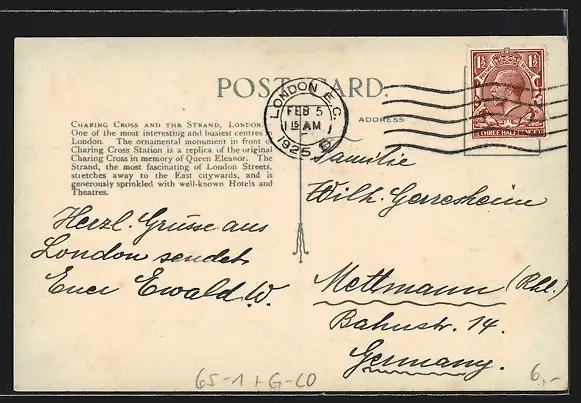 POST CARD.
LONDON E.C.
FEB 5
1 15 AM
1925
1½ 1½
THREE HALF PENCE
ADDRESS
CHARING CROSS AND THE STRAND, LONDON.
One of the most interesting and busiest centres
London. The ornamental monument in front of
Charing Cross Station is a replica of the original
Charing Cross in memory of Queen Eleanor. The
Strand, the most fascinating of London Streets,
stretches away to the East citywards, and is
generously sprinkled with well-known Hotels and
Theatres.
Herzl. Grüsse aus
London sendet
Euer Ewald W.
Familie
Wilh. Gerresheim
Mettmann (Rhl.)
Bahnstr. 14.
Germany.
65-1+G-LO
6,-